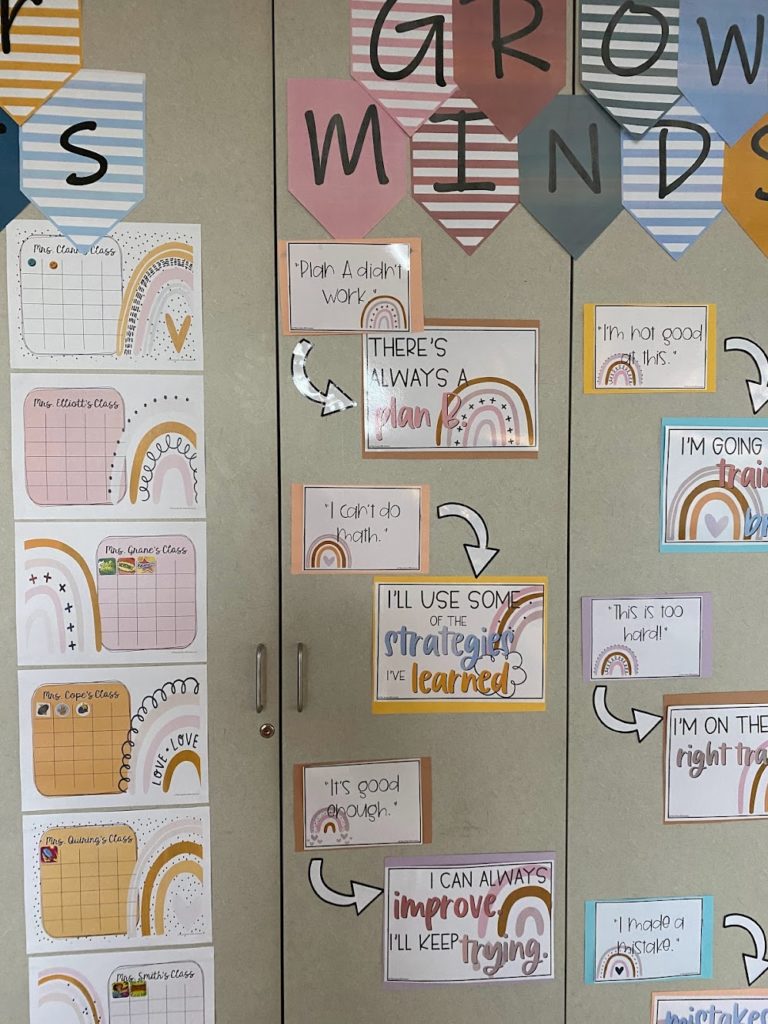 S
GROW
MIND
Mrs. Elliott's Class
Mrs. Grane's Class
Mrs. Cope's Class
LOVE • LOVE
Mrs. Quiring's Class
Mrs. Smith's Class
"Plan A didn't
work."
THERE'S
ALWAYS A
plan B.
"I can't do
math."
I'LL USE SOME
OF THE
strategies
I'VE learned
"It's good
enough."
I CAN ALWAYS
improve.
I'LL KEEP trying.
"I'm not good
at this."
I'M GOING
"This is too
hard!"
I'M ON THE
right
"I made a
mistake."
mistakes